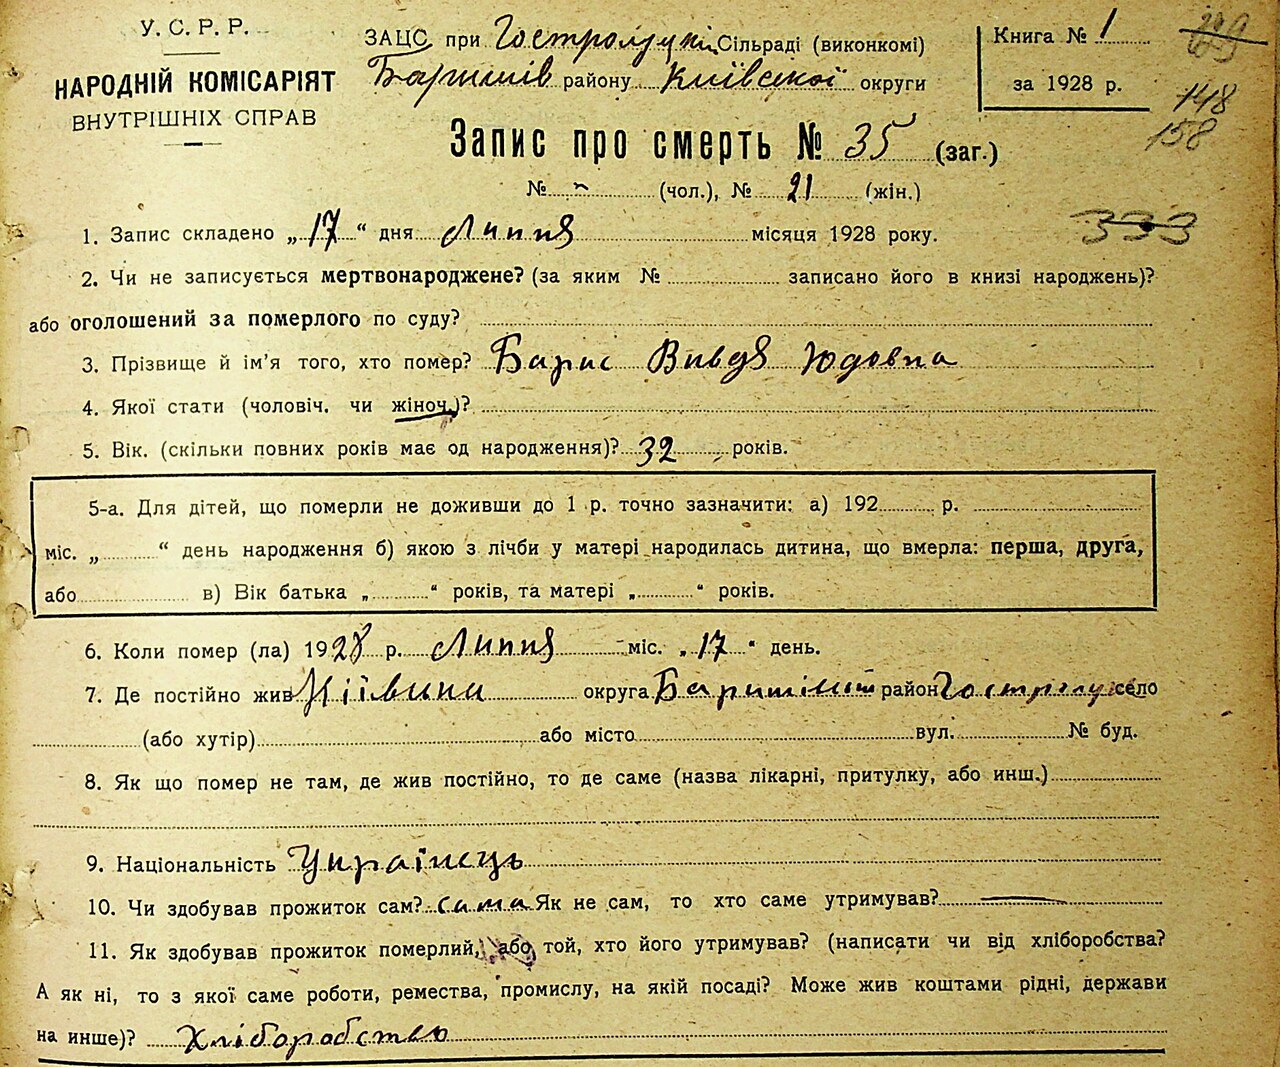 У.С.Р.Р.
НАРОДНІЙ КОМІСАРІЯТ
ВНУТРІШНІХ СПРАВ
ЗАЦС при Гостролуцкі Сільраді (виконкомі)
Баришів району Київської округи
Книга № 1
за 1928 р.
148
158
Запис про смерть № 35 (заг.)
№ - (чол.), № 21 (жін.)
1. Запис складено „17“ дня Липня місяця 1928 року.
333
2. Чи не записується мертвонароджене? (за яким № записано його в книзі народжень)?
або оголошений за померлого по суду?
3. Прізвище й ім'я того, хто помер? Барис Вивдя Юдовна
4. Якої стати (чоловіч. чи жіноч.)?
5. Вік. (скільки повних років має од народження)? 32 років.
5-а. Для дітей, що померли не доживши до 1 р. точно зазначити: а) 192 р.
міс. „ “ день народження б) якою з лічби у матері народилась дитина, що вмерла: перша, друга,
або в) Вік батька „ “ років, та матері „ “ років.
6. Коли помер (ла) 1928 р. Липня міс. „17“ день.
7. Де постійно жив округа район село
(або хутір) або місто вул. № буд.
8. Як що помер не там, де жив постійно, то де саме (назва лікарні, притулку, або инш.)
9. Національність Українець
10. Чи здобував прожиток сам? сама Як не сам, то хто саме утримував?
11. Як здобував прожиток померлий, або той, хто його утримував? (написати чи від хліборобства?
А як ні, то з якої саме роботи, ремества, промислу, на якій посаді? Може жив коштами рідні, держави
на инше)? Хліборобство